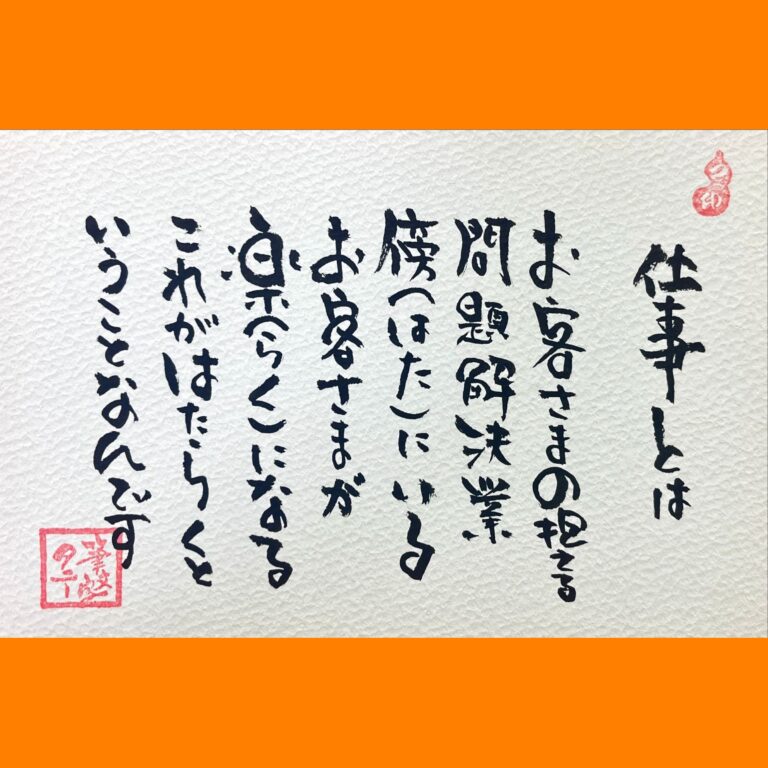 仕事とは
お客さまの抱える
問題解決業
傍(はた)にいる
お客さまが
楽(らく)になる
これがはたらくと
いうことなんです